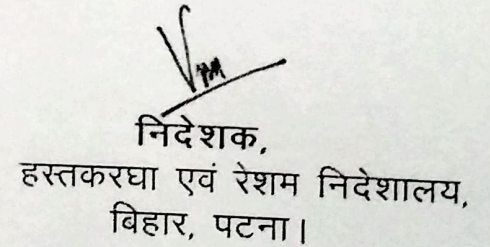 निदेशक,
हस्तकरघा एवं रेशम निदेशालय,
बिहार, पटना।